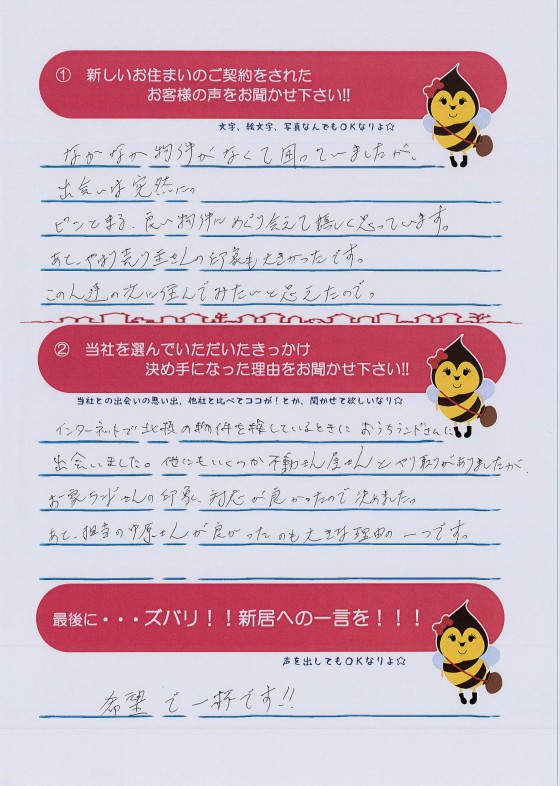 ① 新しいお住まいのご契約をされた
お客様の声をお聞かせ下さい!!
文字、絵文字、写真なんでもOKなりよ☆
なかなか物件がなくて困っていましたが、
出会いは突然に。
ピンとまる、良い物件にめぐり会えて嬉しく思っています。
あと、やはり売り主さんの印象も大きかったです。
この人達の次に住んでみたいと思えたので。
② 当社を選んでいただいたきっかけ
決め手になった理由をお聞かせ下さい!!
当社との出会いの思い出、他社と比べてココが!とか、聞かせて欲しいなり☆
インターネットで北摂の物件を探しているときにおうちランドさんに
出会いました。他にもいくつか不動さん屋さんとやり取りがありましたが、
お家ランドさんの印象、対応が良かったので決めました。
あと、担当の中原さんが良かったのも大きな理由の一つです。
最後に・・・ズバリ！！新居への一言を！！！
声を出してもOKなりよ☆
希望で一杯です!!